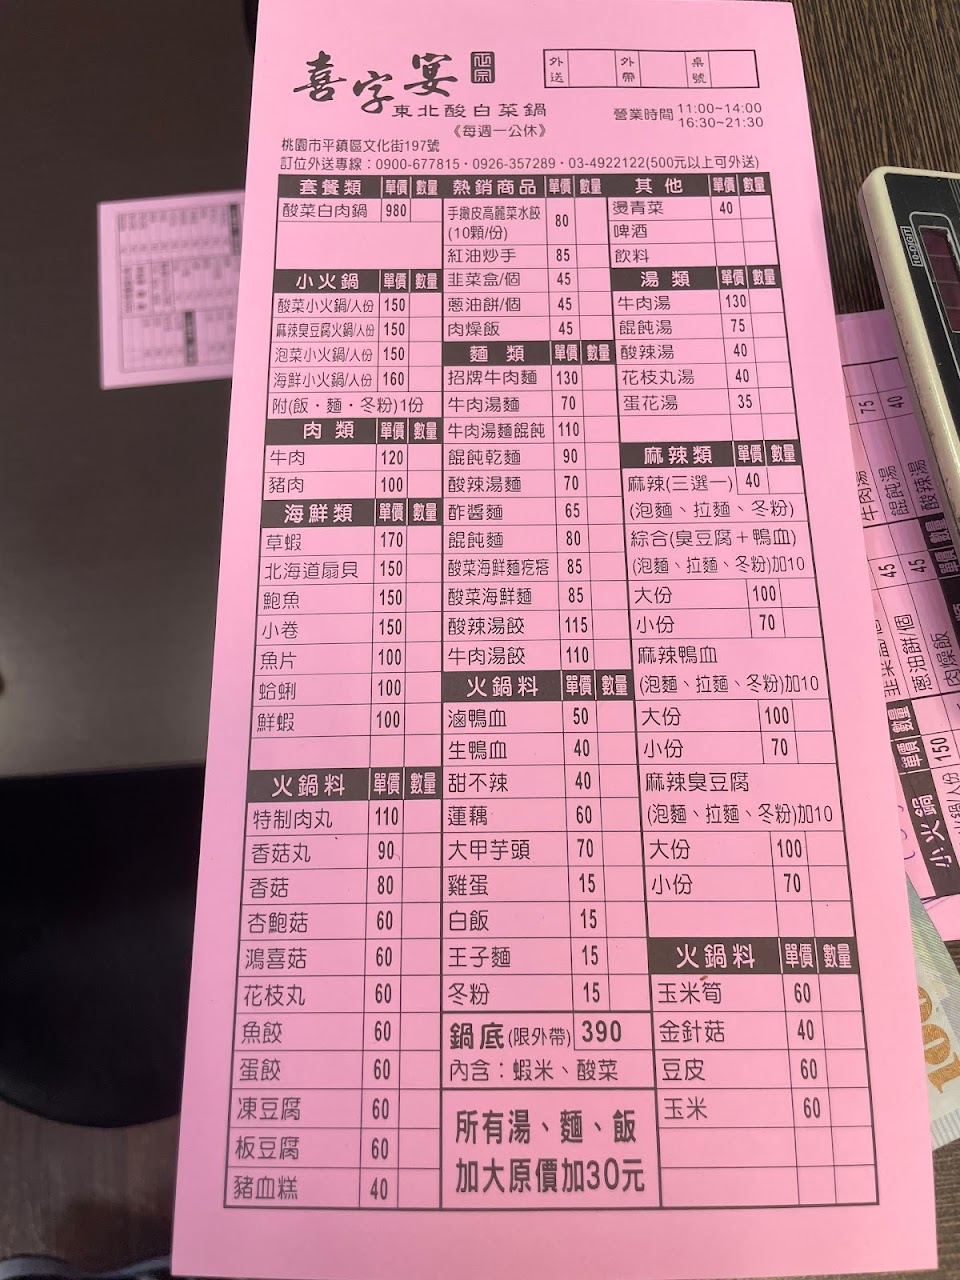 喜字宴 正宗
東北酸白菜鍋
《每週一公休》
外送 外帶 桌號
營業時間 11:00~14:00
16:30~21:30
桃園市平鎮區文化街197號
訂位外送專線：0900-677815・0926-357289・03-4922122(500元以上可外送)
套餐類 單價 數量
酸菜白肉鍋 980
小火鍋 單價 數量
酸菜小火鍋/人份 150
麻辣臭豆腐火鍋/人份 150
泡菜小火鍋/人份 150
海鮮小火鍋/人份 160
附(飯・麵・冬粉)1份
肉類 單價 數量
牛肉 120
豬肉 100
海鮮類 單價 數量
草蝦 170
北海道扇貝 150
鮑魚 150
小卷 150
魚片 100
蛤蜊 100
鮮蝦 100
火鍋料 單價 數量
特制肉丸 110
香菇丸 90
香菇 80
杏鮑菇 60
鴻喜菇 60
花枝丸 60
魚餃 60
蛋餃 60
凍豆腐 60
板豆腐 60
豬血糕 40
熱銷商品 單價 數量
手擀皮高麗菜水餃
(10顆/份) 80
紅油炒手 85
韭菜盒/個 45
蔥油餅/個 45
肉燥飯 45
麵類 單價 數量
招牌牛肉麵 130
牛肉湯麵 70
牛肉湯麵餛飩 110
餛飩乾麵 90
酸辣湯麵 70
酢醬麵 65
餛飩麵 80
酸菜海鮮麵疙瘩 85
酸菜海鮮麵 85
酸辣湯餃 115
牛肉湯餃 110
火鍋料 單價 數量
滷鴨血 50
生鴨血 40
甜不辣 40
蓮藕 60
大甲芋頭 70
雞蛋 15
白飯 15
王子麵 15
冬粉 15
鍋底(限外帶) 390
內含：蝦米、酸菜
所有湯、麵、飯
加大原價加30元
其他 單價 數量
燙青菜 40
啤酒
飲料
湯類 單價 數量
牛肉湯 130
餛飩湯 75
酸辣湯 40
花枝丸湯 40
蛋花湯 35
麻辣類 單價 數量
麻辣(三選一) 40
(泡麵、拉麵、冬粉)
綜合(臭豆腐＋鴨血)
(泡麵、拉麵、冬粉)加10
大份 100
小份 70
麻辣鴨血
(泡麵、拉麵、冬粉)加10
大份 100
小份 70
麻辣臭豆腐
(泡麵、拉麵、冬粉)加10
大份 100
小份 70
火鍋料 單價 數量
玉米筍 60
金針菇 40
豆皮 60
玉米 60
10-DIGIT
牛肉湯
餛飩湯 75
酸辣湯 40
單價 數量
45
蔥油餅/個 45
肉燥飯
小火鍋 單價 數量
150
100